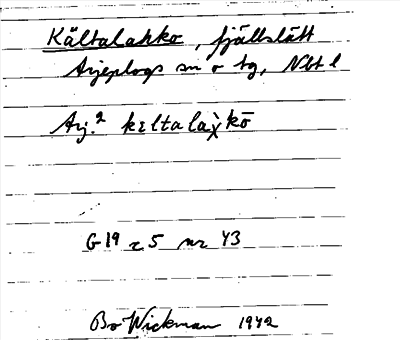 Kältalahko, fjällslätt
Arjeplogs sn o tg, Nbt l
Arj.² kεltalaχ̀kō
G19 r 5 nr 43
Bo Wickman 1942